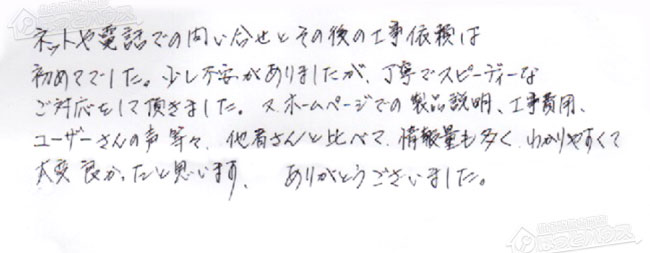 ネットや電話での問い合せとその後の工事依頼は
初めてでした。少し不安がありましたが、丁寧でスピーディーな
ご対応をして頂きました。又、ホームページでの製品説明、工事費用、
ユーザーさんの声等々、他者さんと比べて、情報量も多く、わかりやすくて
大変良かったと思います。 ありがとうございました。